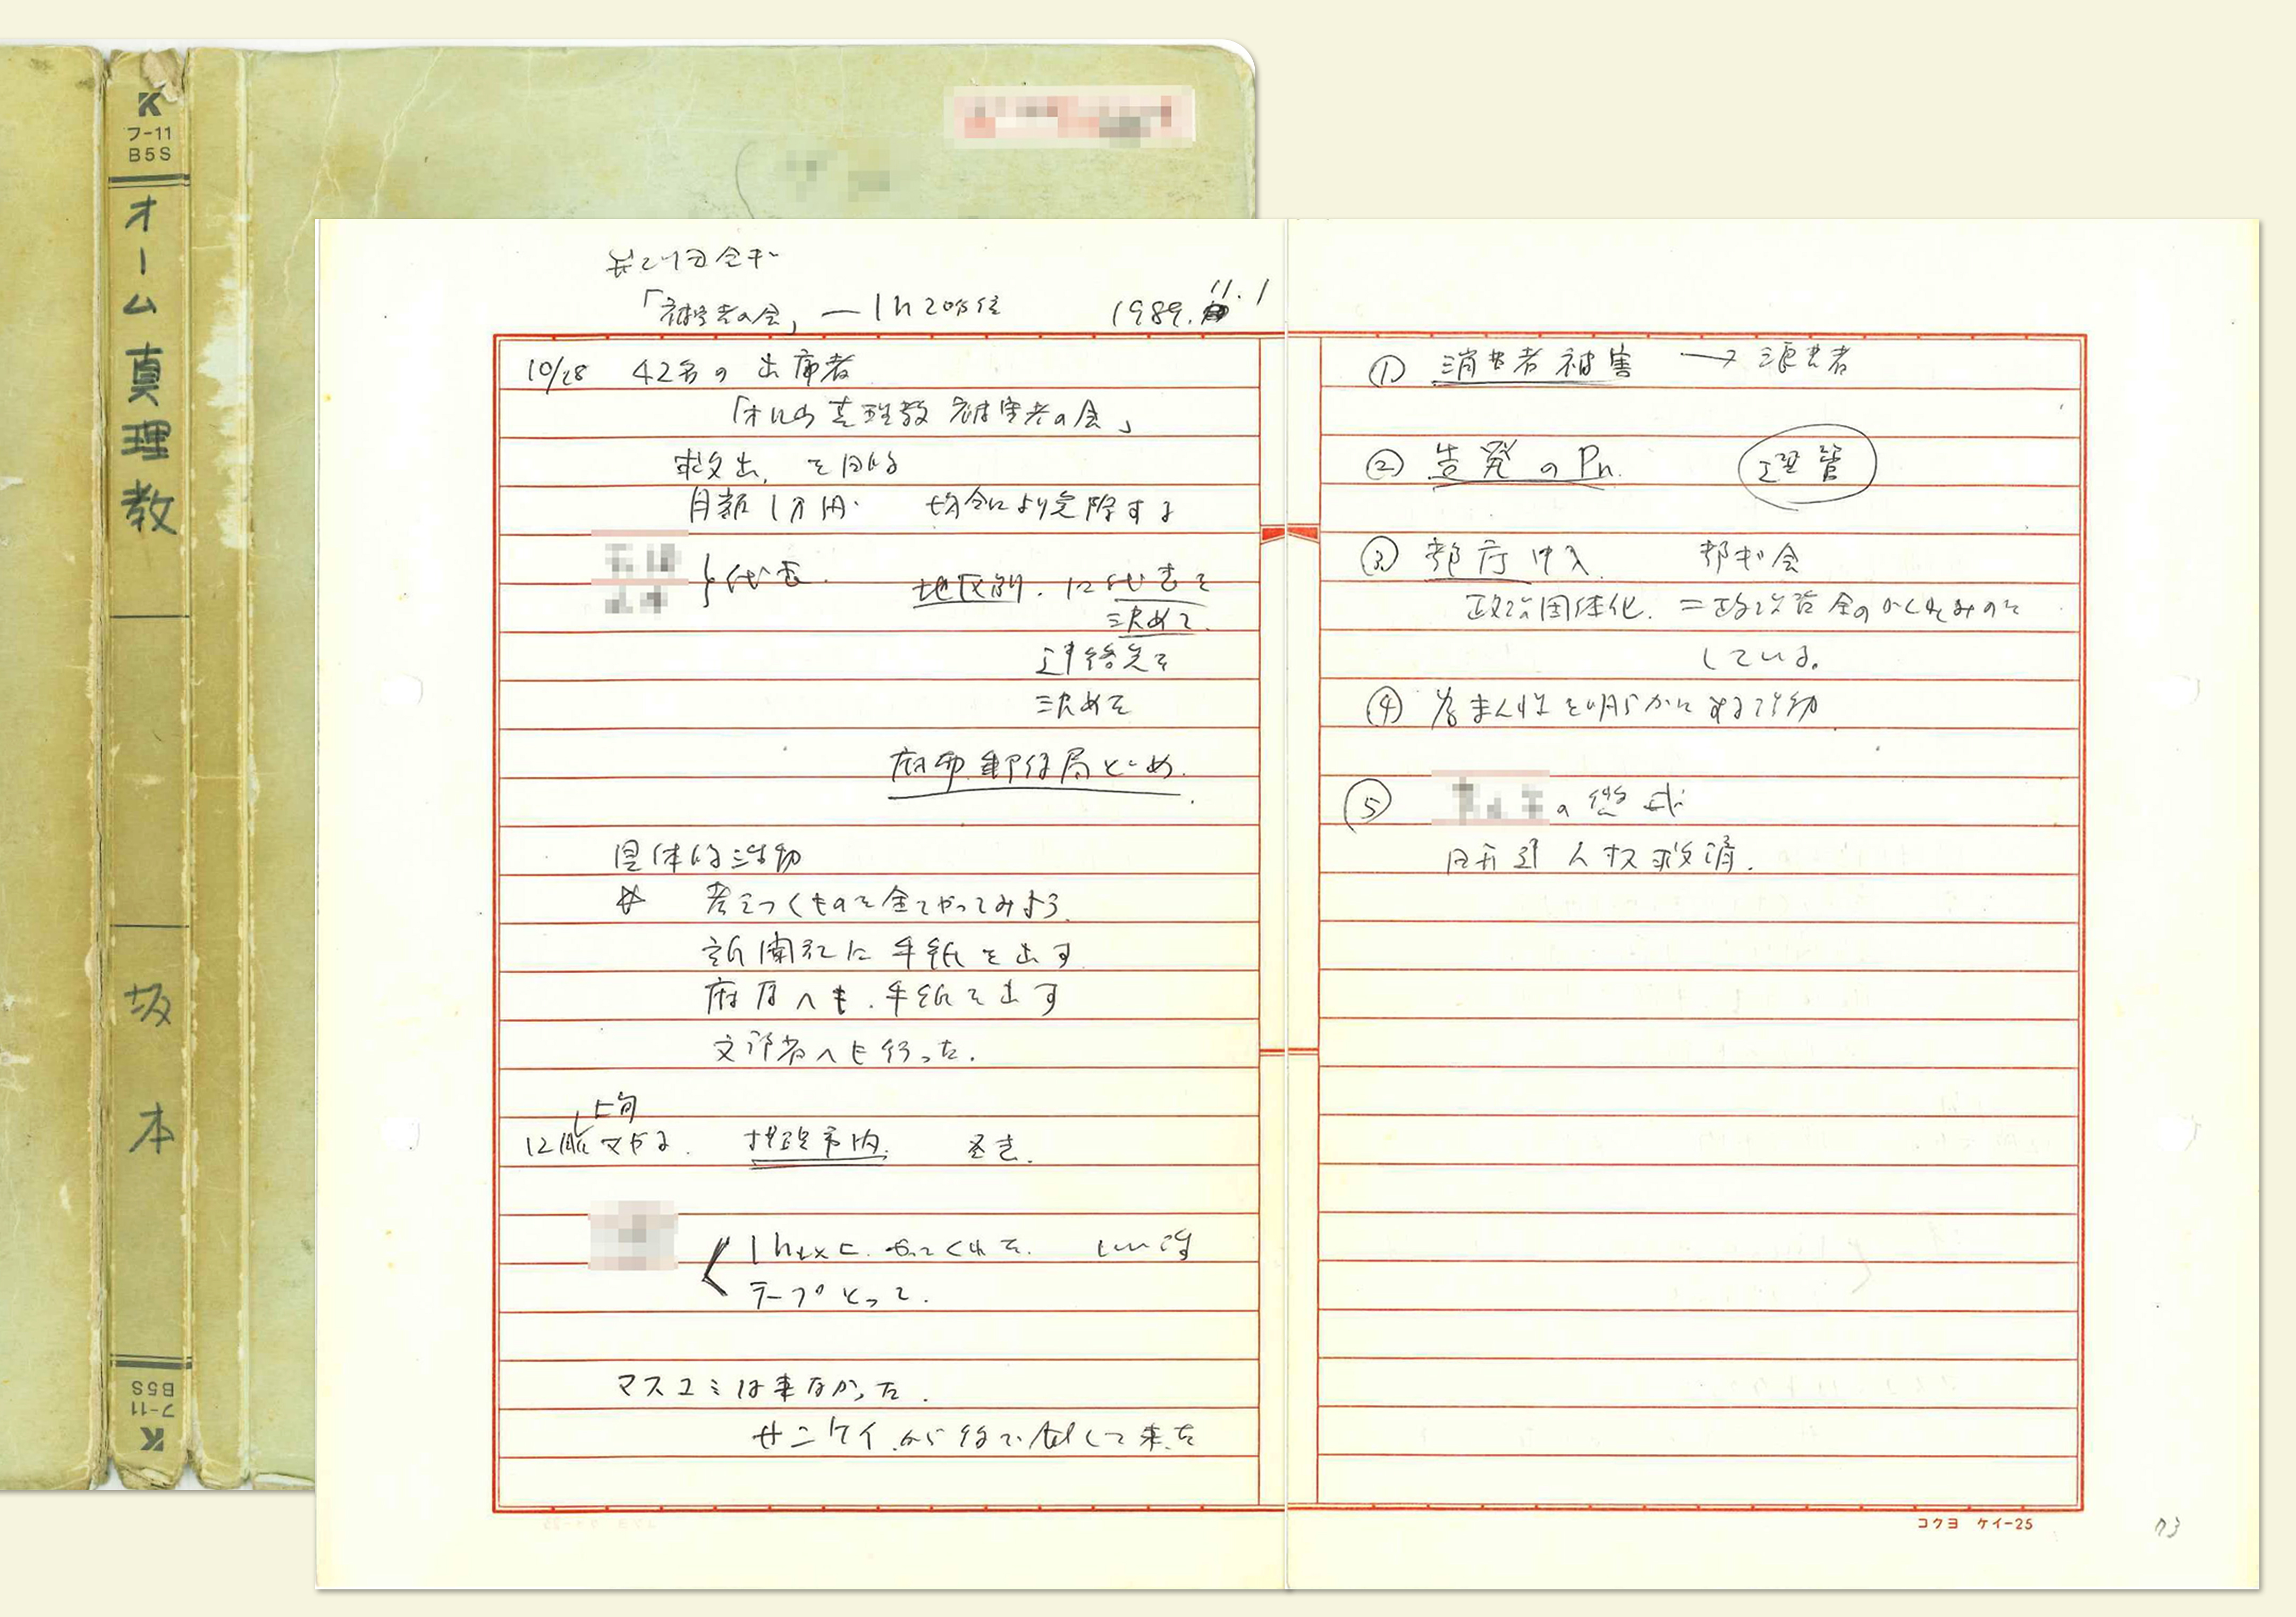 K
フ-11
B5S
オーム真理教
坂本
B5S
フ-11
K
「被害者の会」 — 1h20分位 1989.11.1
10/28 42名の出席者
「オーム真理教被害者の会」
救出を目的
月額1万円 により免除する
代表 地区別に代表を
決めて
連絡先を
決めて
麻布郵便局とめ
具体的活動
考えつくものを全てやってみよう
新聞社に手紙を出す
へも手紙を出す
文部省へも行った。
上旬
12 市内
1h
テープとって
マスコミは来なかった。
サンケイから後で して来た
① 消費者被害 →
② 告発のPn.
③ 都庁申入 都議会
政治団体化 =政治資金のかくれみのを
している。
④ 欺まん性を明らかにする行動
⑤ の懲戒
人身救済
コクヨ ケイ-25
73